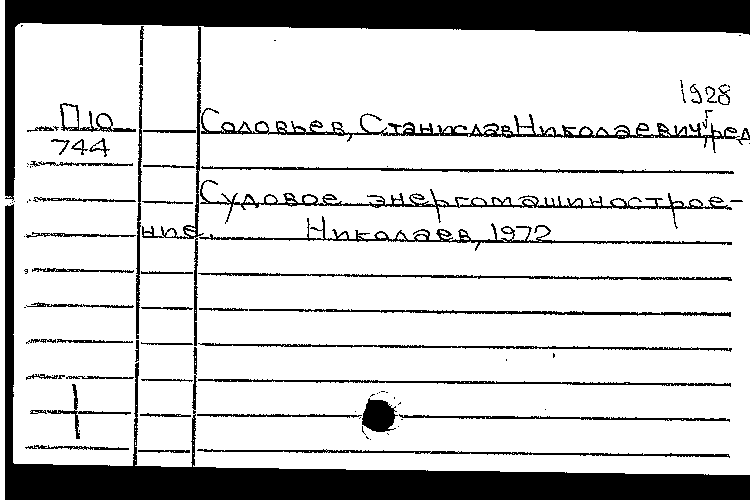 1928
П10
744
Соловьев, Станислав Николаевич, ред
Судовое энергомашинострое-
ние. Николаев, 1972